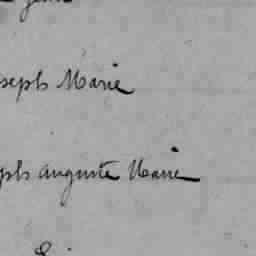 seph Marie
ph auguste Marie